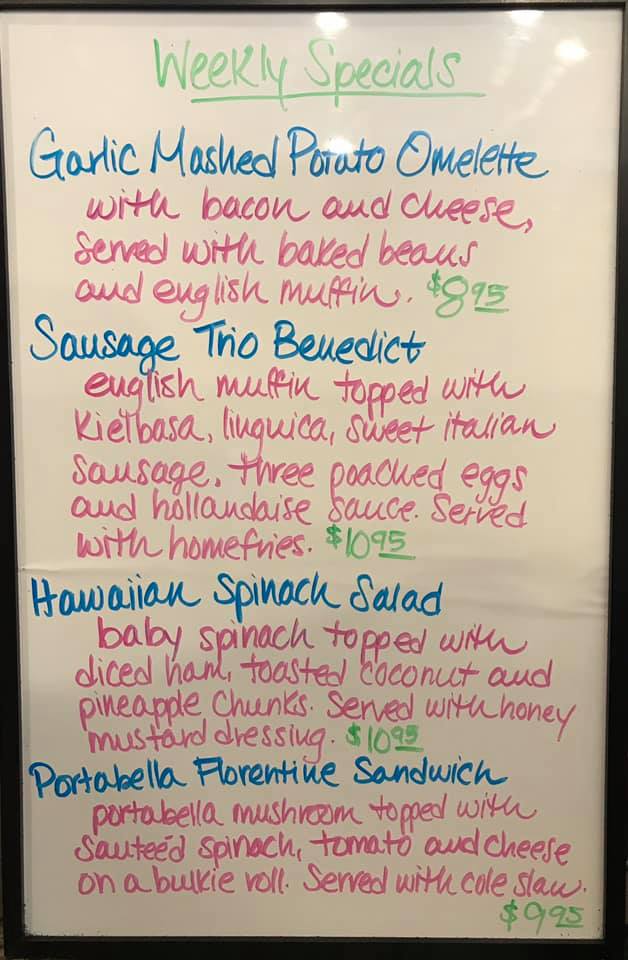 Weekly Specials
Garlic Mashed Potato Omelette
with bacon and cheese,
served with baked beans
and english muffin. $8.95
Sausage Trio Benedict
english muffin topped with
Kielbasa, linguica, sweet italian
sausage, three poached eggs
and hollandaise sauce. Served
with homefries. $10.95
Hawaiian Spinach Salad
baby spinach topped with
diced ham, toasted coconut and
pineapple chunks. Served with honey
mustard dressing. $10.95
Portabella Florentine Sandwich
portabella mushroom topped with
sauteéd spinach, tomato and cheese
on a bulkie roll. Served with cole slaw.
$9.95